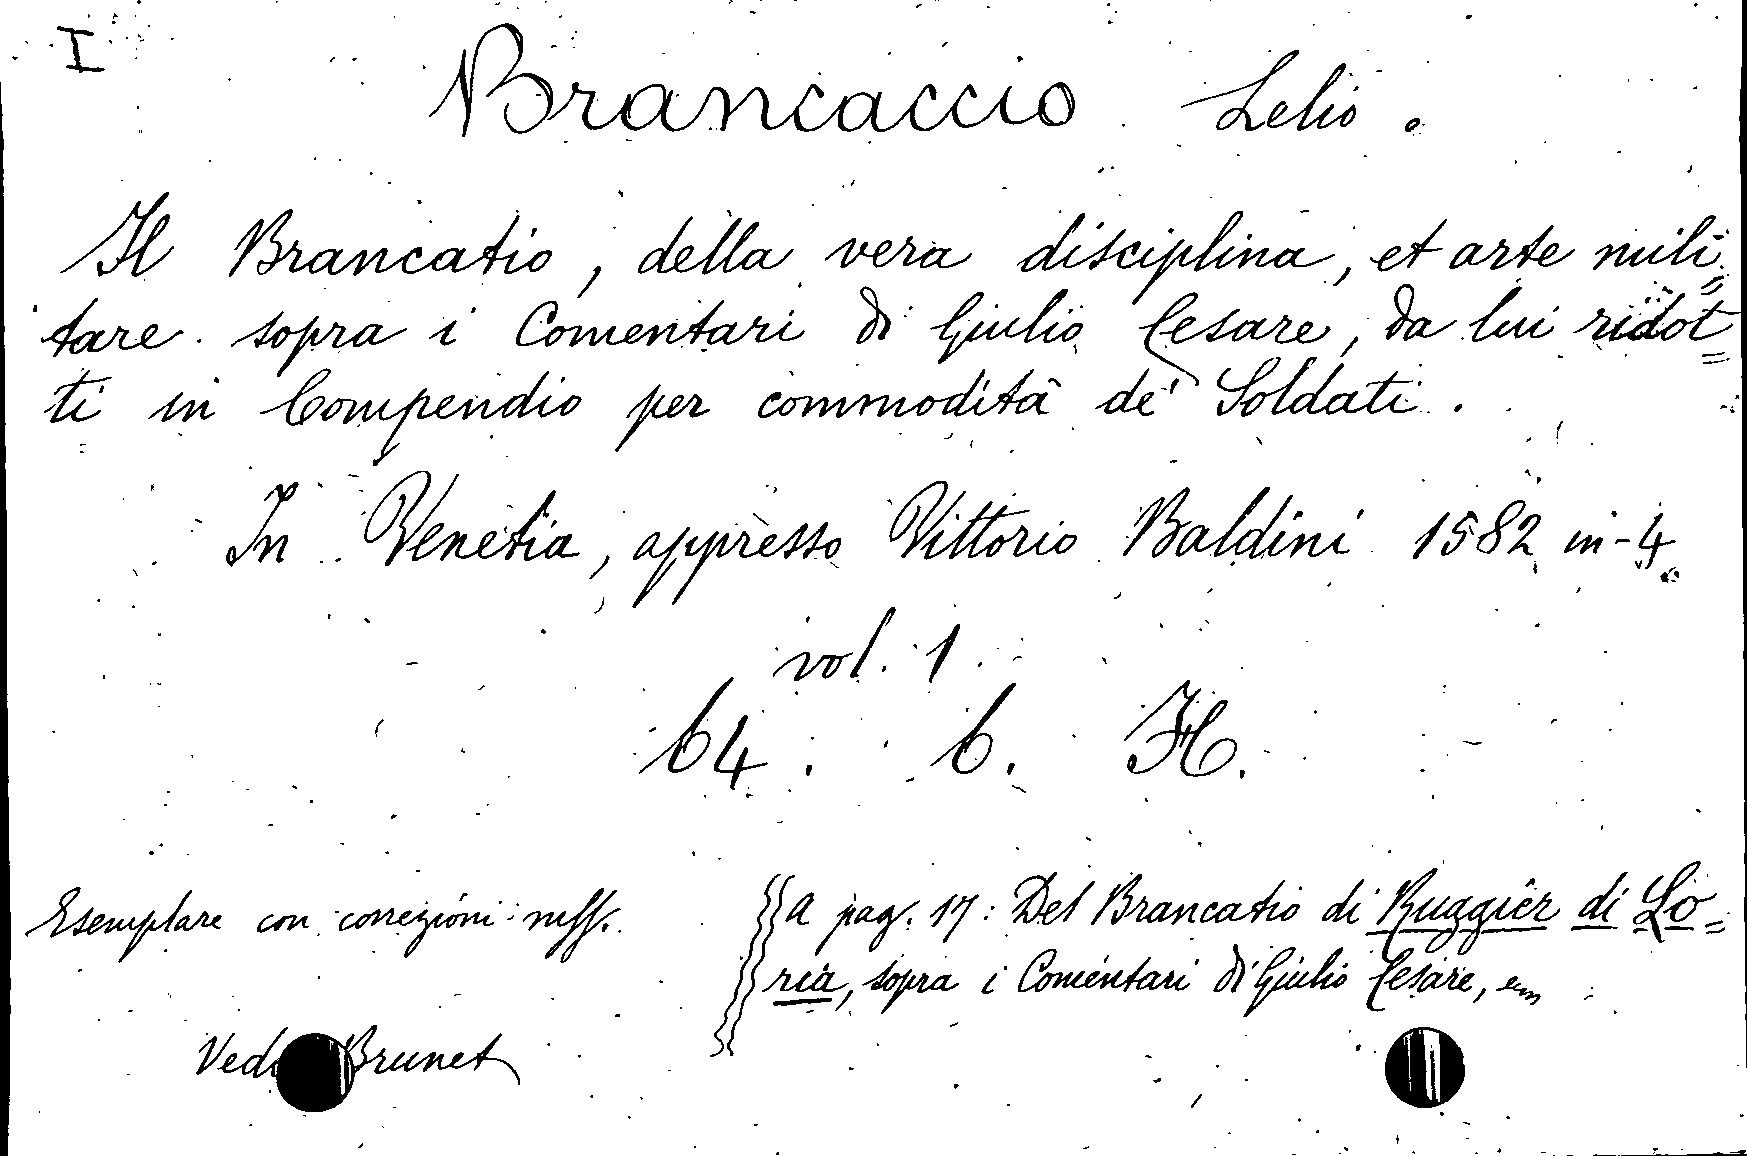 I
Brancaccio Lelio.
Il Brancatio, della vera disciplina, et arte mili=
tare sopra i Comentari di Giulio Cesare, da lui ridot=
ti in Compendio per commodità de' Soldati.
In Venetia, appresso Vittorio Baldini 1582 in-4.
vol. 1.
64. 6. H.
Esemplare con correzioni mss.
A pag. 17: Del Brancatio di Ruggier di Lo=
ria, sopra i Comentari di Giulio Cesare,
Vedi Brunet